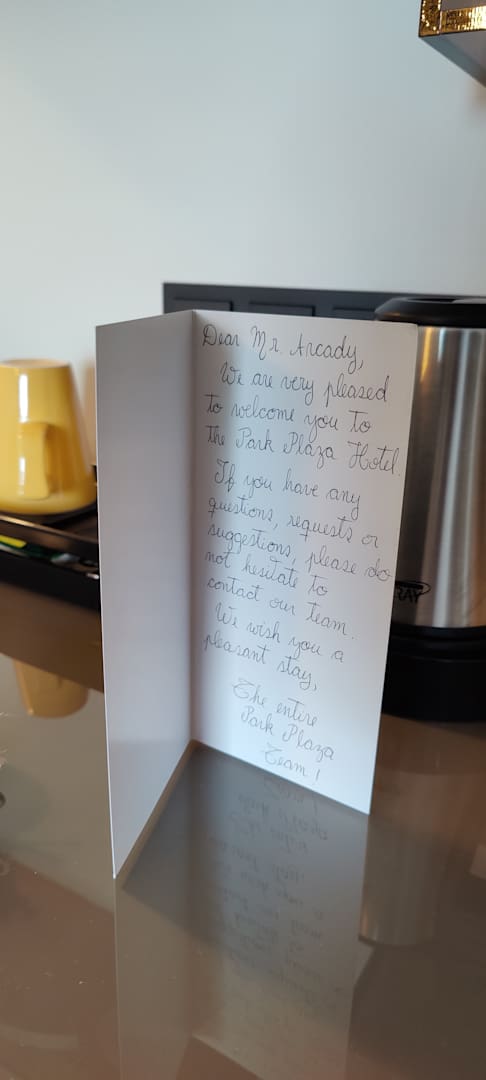 Dear Mr. Arcady,
We are very pleased
to welcome you to
the Park Plaza Hotel.
If you have any
questions, requests or
suggestions, please do
not hesitate to
contact our team.
We wish you a
pleasant stay,
The entire
Park Plaza
Team!